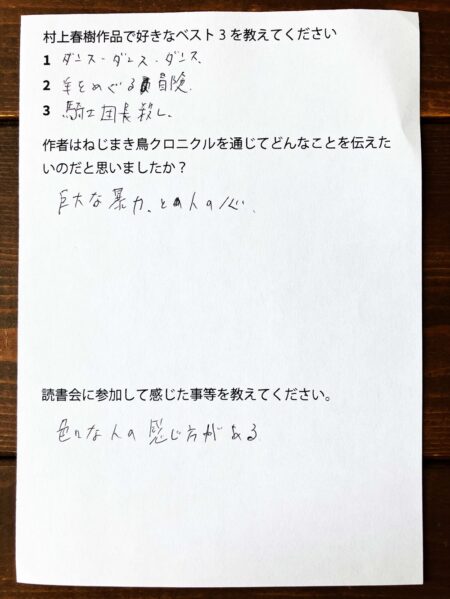 村上春樹作品で好きなベスト3を教えてください
1 ダンス・ダンス・ダンス、
2 羊をめぐる冒険、
3 騎士団長殺し、
作者はねじまき鳥クロニクルを通じてどんなことを伝えた
いのだと思いましたか？
巨大な暴力、と人の心、
読書会に参加して感じた事等を教えてください。
色々な人の感じ方がある